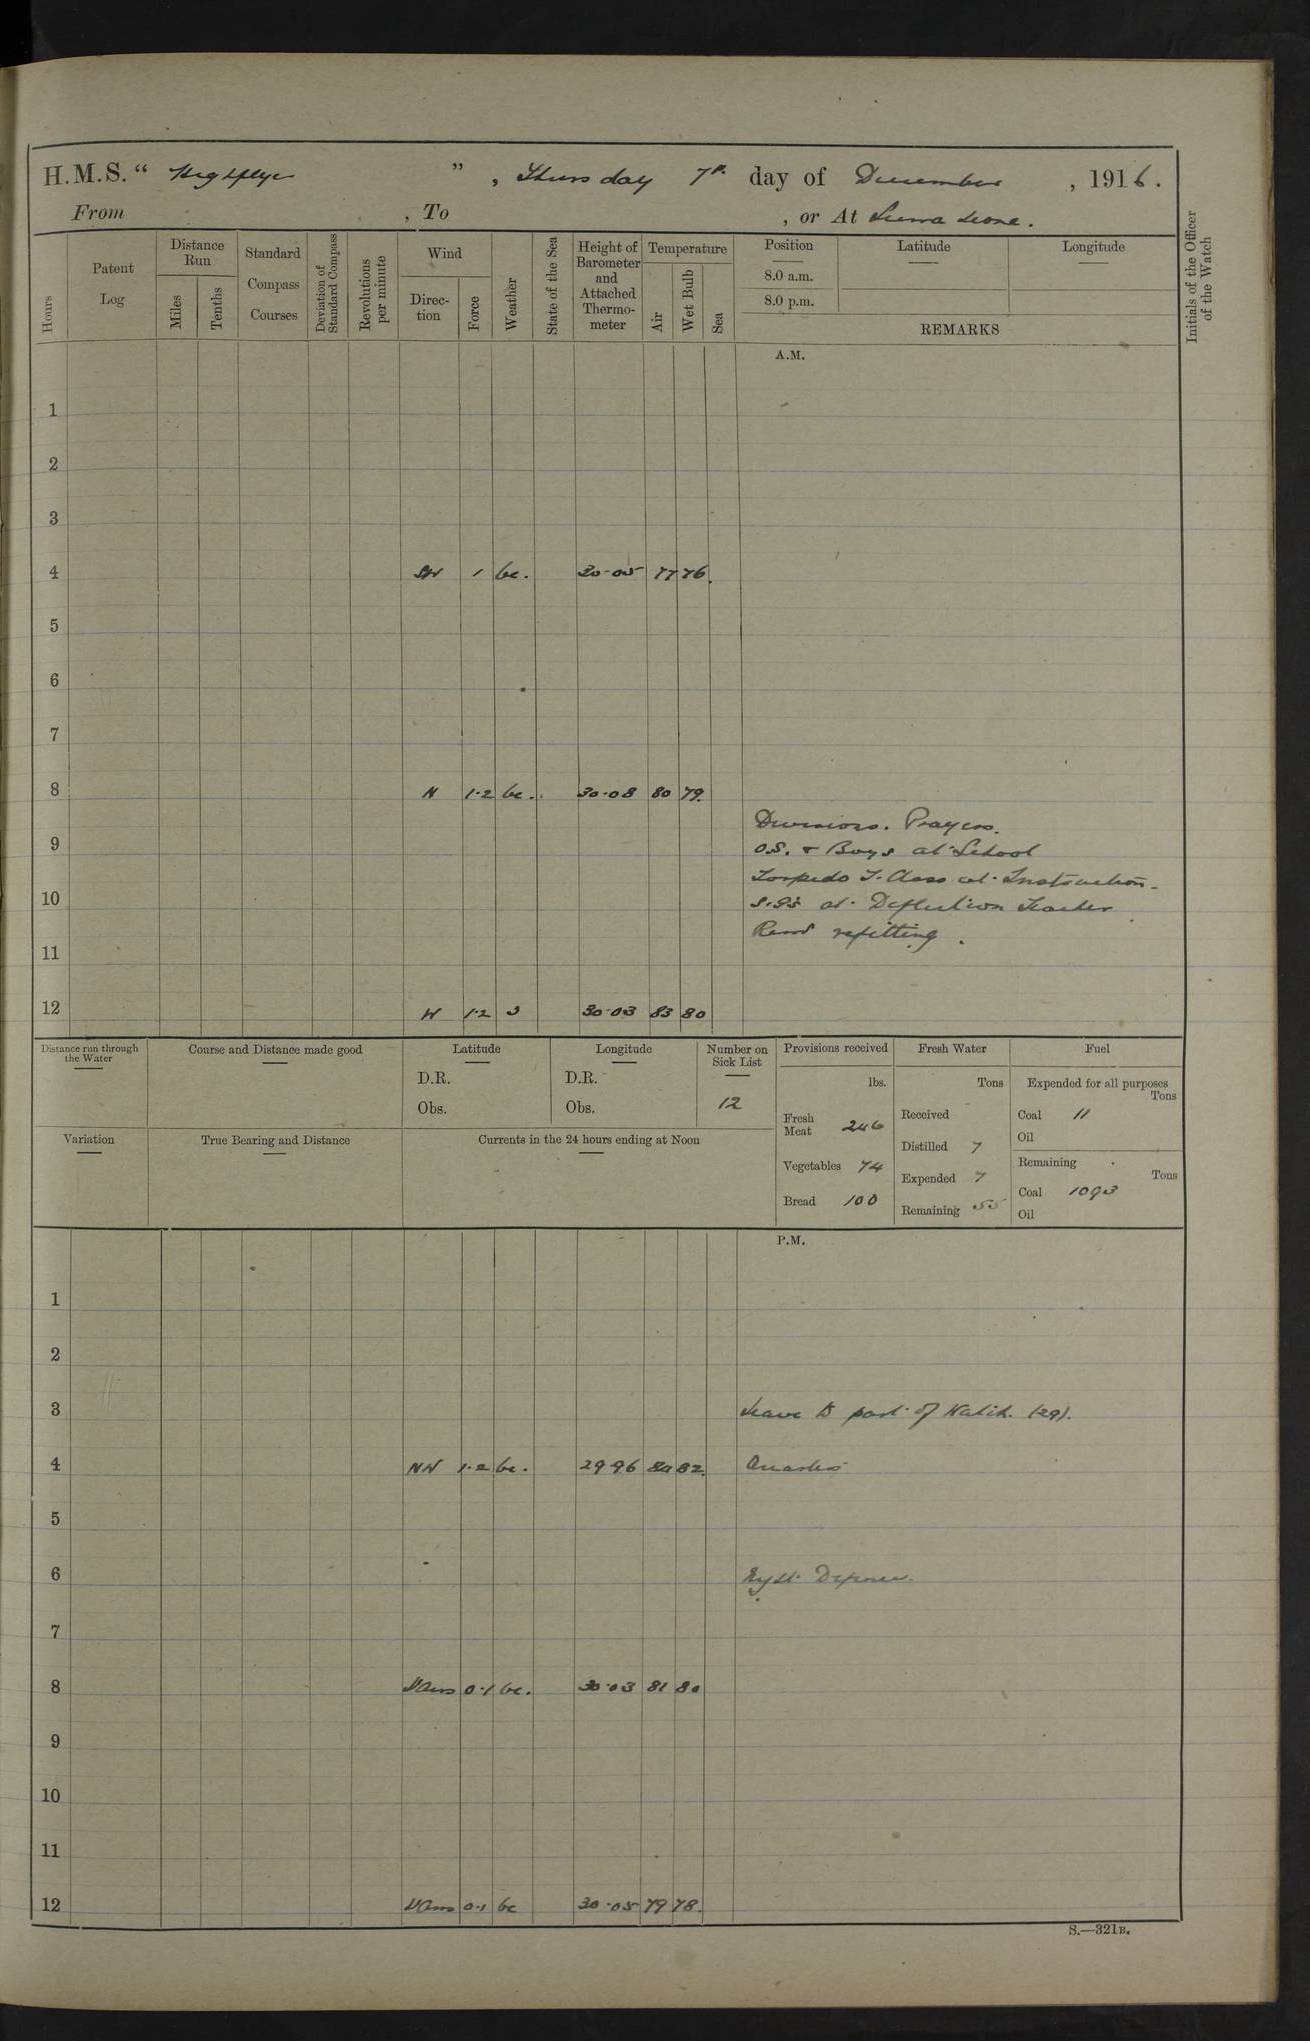 H.M.S. " Highflyer ", Thursday 7th day of December, 1916.
From , To , or At Sierra Leone.
Hours
Patent Log
Distance Run
Miles
Tenths
Standard Compass Courses
Deviation of Standard Compass
Revolutions per minute
Wind
Direction
Force
Weather
State of the Sea
Height of Barometer and Attached Thermometer
Temperature
Air
Wet Bulb
Sea
Position
8.0 a.m.
8.0 p.m.
Latitude
Longitude
REMARKS
Initials of the Officer of the Watch
A.M.
1
2
3
4 SW 1 bc. 30.05 77 76
5
6
7
8 N 1.2 bc. 30.08 80 79
Divisions. Prayers.
9 O.S. & Boys at School
Torpedo T. Class at Instruction
10 at Deflection Teacher
Rem refitting.
11
12 W 1.2 30.03 83 80
Distance run through the Water
Course and Distance made good
Latitude
D.R.
Obs.
Longitude
D.R.
Obs.
Number on Sick List
12
Provisions received
lbs.
Fresh Meat 246
Vegetables 74
Bread 100
Fresh Water
Tons
Received
Distilled 7
Expended 7
Remaining 55
Fuel
Expended for all purposes
Tons
Coal 11
Oil
Remaining
Tons
Coal 1093
Oil
Variation
True Bearing and Distance
Currents in the 24 hours ending at Noon
P.M.
1
2
3 Leave to part of Watch. (29).
4 NW 1.2 bc. 29.96 84 82 Quarters
5
6 Night Defence.
7
8 Vars 0.1 bc. 30.03 81 80
9
10
11
12 Vars 0.1 bc 30.05 79 78
S.—321B.